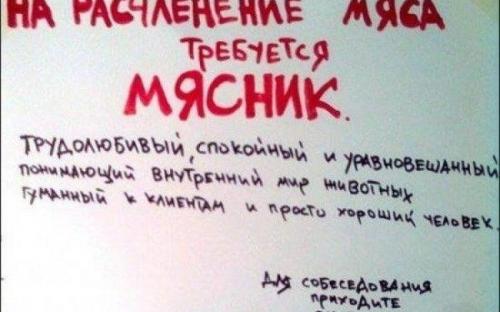 НА РАСЧЛЕНЕНИЕ МЯСА
ТРЕБУЕТСЯ
МЯСНИК.
ТРУДОЛЮБИВЫЙ, СПОКОЙНЫЙ И УРАВНОВЕШАННЫЙ
ПОНИМАЮЩИЙ ВНУТРЕННИЙ МИР ЖИВОТНЫХ
ГУМАННЫЙ К КЛИЕНТАМ И ПРОСТО ХОРОШИЙ ЧЕЛОВЕК.
ДЛЯ СОБЕСЕДОВАНИЯ
ПРИХОДИТЕ